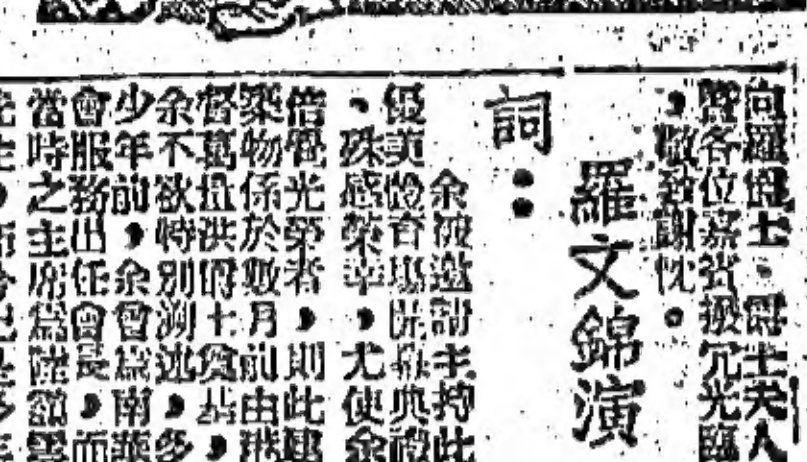 向羅爵士。爵士夫人
暨各位嘉賓撥冗光臨
,敬致謝忱。
羅文錦演
詞:
余被邀請主持此
優美體育場開幕典禮
、殊感榮幸,尤使余
倍覺光榮者,則此建
築物係於數月前由港
督葛量洪爵士奠基,
余不欲特別溯述,多
少年前,余曾為南華
會服務出任會長,而
當時之主席為陸靄雲